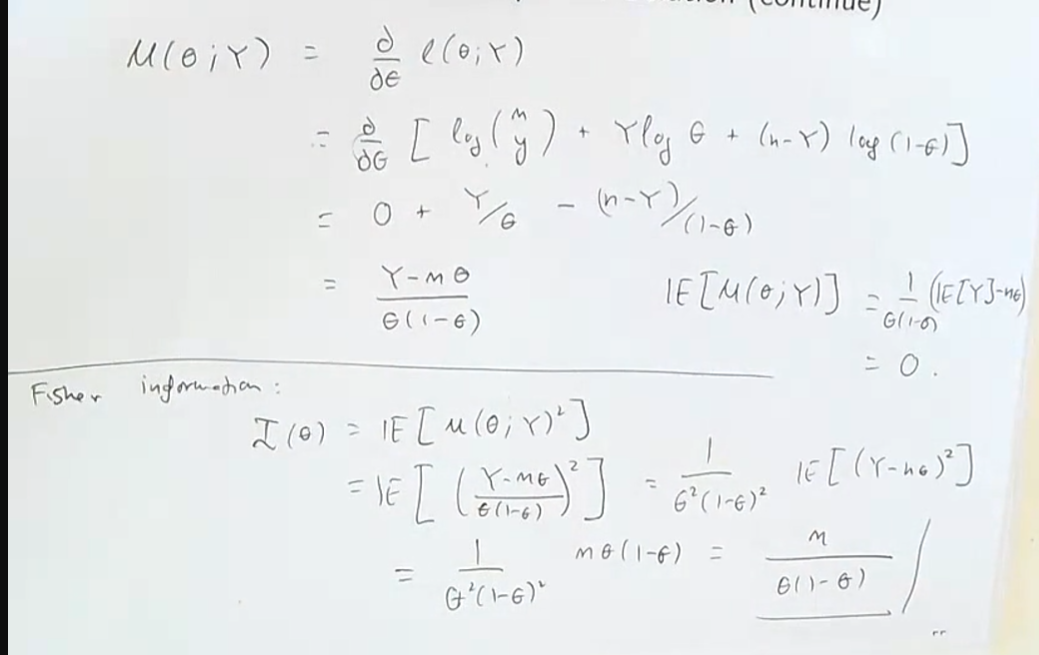 (continue)
u(θ;Y) = ∂/∂θ ℓ(θ;Y)
= ∂/∂θ [ log(n y) + Y log θ + (n-Y) log (1-θ)]
= 0 + Y/θ - (n-Y)/(1-θ)
= (Y-nθ)/(θ(1-θ))    IE[u(θ;Y)] = 1/(θ(1-θ)) (IE[Y]-nθ)
= 0.
Fisher information:
I(θ) = IE[u(θ;Y)²]
= IE[((Y-nθ)/(θ(1-θ)))²] = 1/(θ²(1-θ)²) IE[(Y-nθ)²]
= 1/(θ²(1-θ)²) nθ(1-θ) = n/(θ(1-θ))